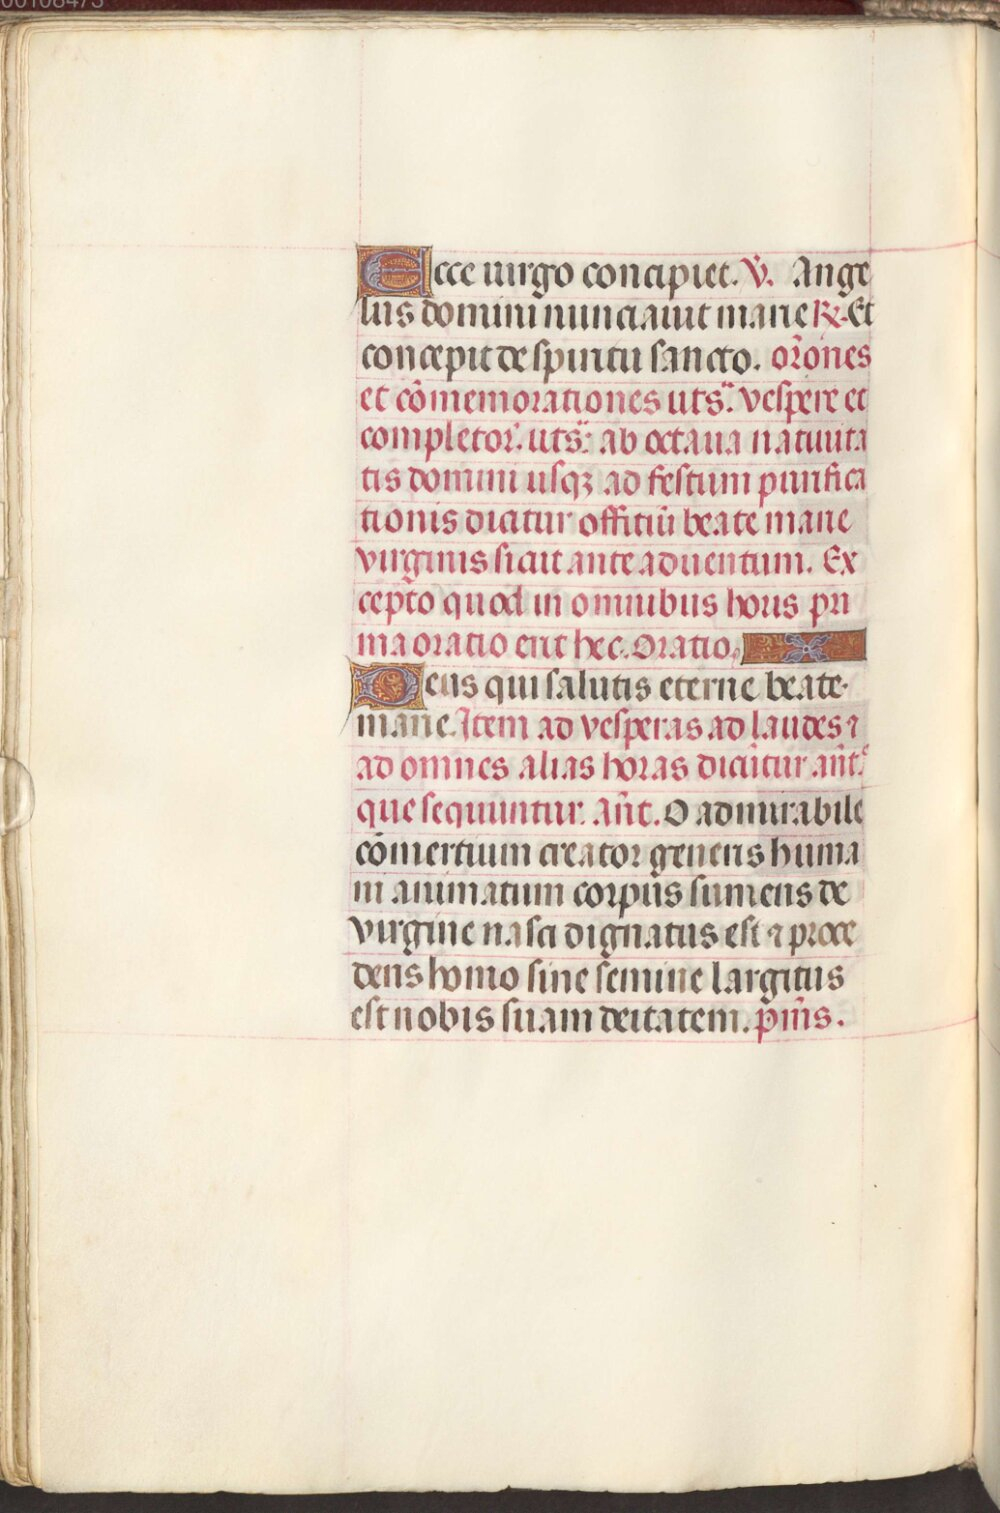 Ecce uirgo concipiet. V. Ange
lus domini nunciauit marie R. Et
concepit de spiritu sancto. orōnes
et cōmemorationes uts.ª vespere et
completor. uts.ª ab octaua natiuita
tis domini usqꝫ ad festum purifica
tionis dicitur offitiū beate marie
virginis sicut ante aduentum. Ex
cepto quod in omnibus horis pri
ma oratio erit hec. Oratio.
Deus qui salutis eterne beate.
marie. Item ad vesperas ad laudes ⁊
ad omnes alias horas dicūtur an̄t.ᵉ
que sequuntur. An̄t. O admirabile
cōmertium creator generis huma
ni animatum corpus sumens de
virgine nasci dignatus est ⁊ proce
dens homo sine semine largitus
est nobis suam deitatem. p̄ms.